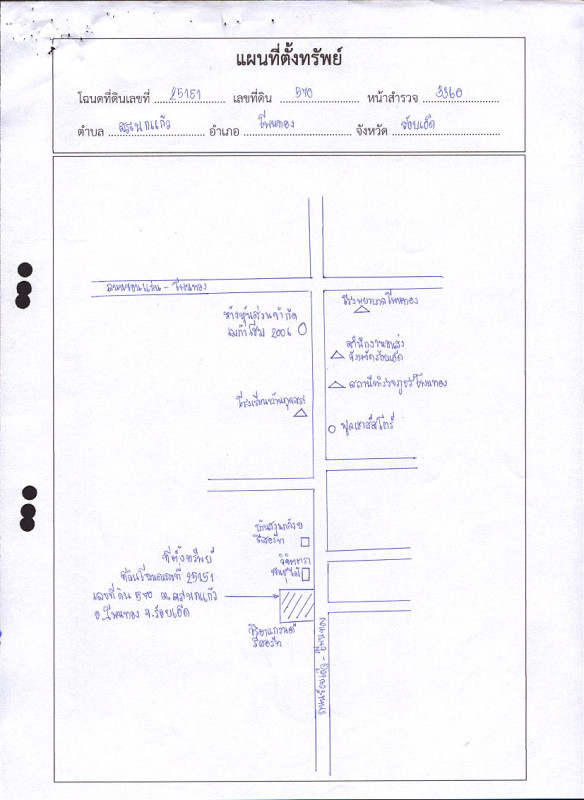 แผนที่ตั้งทรัพย์
โฉนดที่ดินเลขที่ 25151 เลขที่ดิน 570 หน้าสำรวจ 3360
ตำบล สระนกแก้ว อำเภอ โพนทอง จังหวัด ร้อยเอ็ด
ถนนชอนแก่น - โพนทอง
โรงพยาบาลโพนทอง
ห้างหุ้นส่วนจำกัด
2006
สำนักงานขนส่ง
จังหวัดร้อยเอ็ด
สถานีตำรวจภูธรโพนทอง
โรงเรียนบ้าน
บ้านสวนกล้วย
รีสอร์ท
ที่ตั้งทรัพย์
ที่ดินโฉนดเลขที่ 25151
เลขที่ดิน 570 ต.สระนกแก้ว
อ.โพนทอง จ.ร้อยเอ็ด
รีสอร์ท
ถนนร้อยเอ็ด - โพนทอง